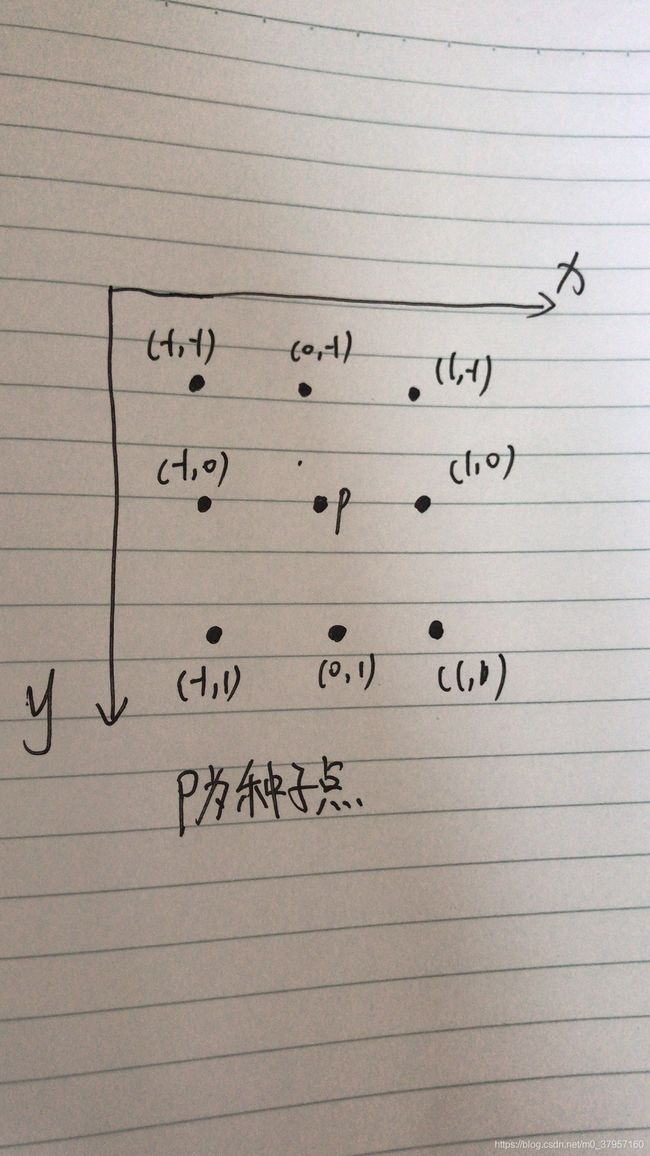 x
(-1,-1) (0,-1) (1,-1)
(-1,0) (1,0)
p
(-1,1) (0,1) (1,1)
y
p为种子点
https://blog.csdn.net/m0_37957160